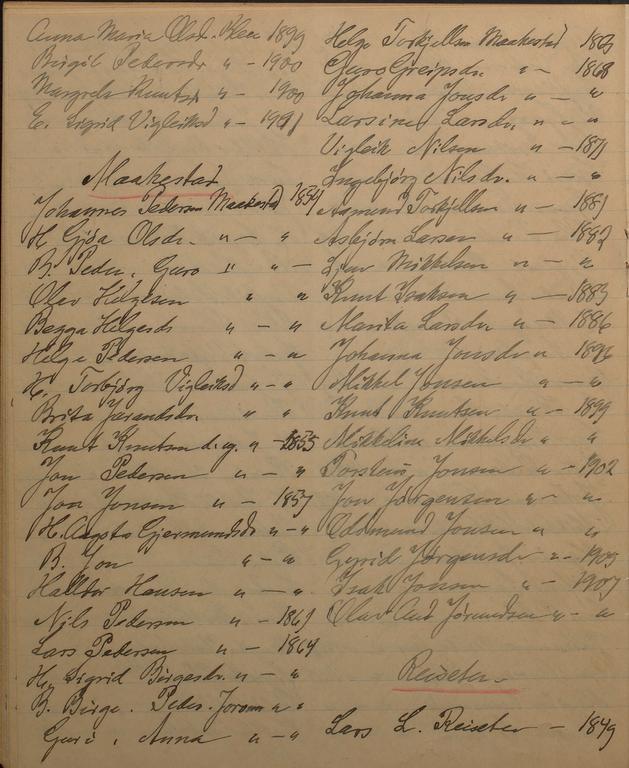 Anna Maria Olsd. Klea 1899
Birgit Pedersdr " - 1900
Margreta Knutsd " - 1900
E. Sigrid Vigleiksd " - 1901
Maakestad
Johannes Pedersen Maakestad 1854
H. Gjøa Olsdr. " - "
B. Peder, Guro " " - "
Olav Helgesen " "
Begga Helgesd " - "
Helge Pedersen " - "
H. Torbjørg Vigleiksd " - "
Brita Jørandsdr. " "
Knut Knutsen d. y. " - 1855
Jon Pedersen " - "
Jon Jonsen " - 1857
H. Aagota Gjermundsd " - "
B. Jon " - "
Halltor Hansen " - "
Nils Pedersen " - 1861
Lars Pedersen " - 1864
H. Sigrid Børgesdr. " - "
B. Børge. Peder. " "
Guri, Anna " - "
Helge Torkjellsen Maakestad 1865
Guro Greipsdr. " - 1868
Johanna Jonsdr " - "
Larsine Larsdr. " - "
Vigleik Nilsen " - 1871
Ingebjørg Nilsdr. " - "
Aamund Torkjellsen " - 1881
Asbjørn Larsen " - 1882
Mikkelsen " - "
Knut Isaksen " - 1883
Marita Larsdr " - 1886
Johanna Jonsdr " 1896
Mikkel Jonsen " - "
Knut Knutsen " - 1899
Mikkeline Mikkelsdr " "
Torstein Jonsen " - 1902
Jon Jørgensen " - "
Oddmund Jonsen " "
Gyrid Jørgensdr " - 1905
Isak Jonsen " - 1907
Olav Aud Jørundsen " - "
Reiseter
Lars L. Reiseter - 1849